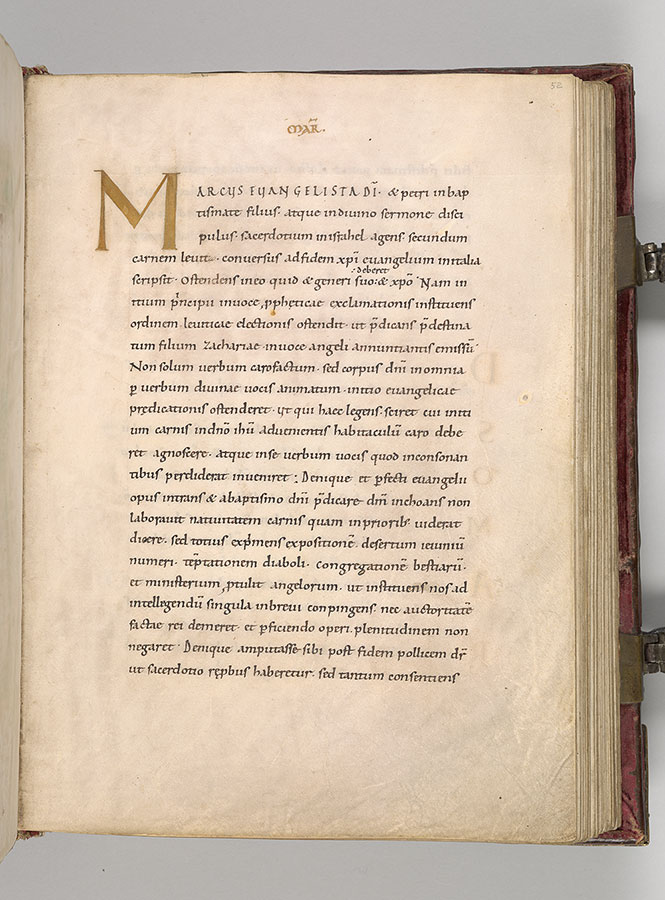 52
MAR̄
MARCUS EUANGELISTA DĪ · & petri in bap
tismate filius · atque indivino sermone disci
pulus · sacerdotium inisrahel agens · secundum
carnem levita · conversus adfidem xp̄i euangelium initalia
scripsit · Ostendens ineo quid & generi suo · deberet · & xp̄o · Nam in
itium prīncipii invoce ꝓphęticae exclamationis instituens
ordinem leviticae electionis ostendit · ut p̄dicans p̄destina
tum filium zachariae · invoce angeli annuntiantis emissū ·
Non solum verbum carofactum · sed corpus dn̄i inomnia
ꝑ verbum divinae vocis animatum · initio euangelicae
pręedicationis ostenderet · ut qui haec legens · sciret cui initi
um carnis indn̄o ih̄u advenientis habitaculū caro debe
ret agnoscere · atque inse verbum vocis quod inconsonan
tibus perdiderat inveniret ; Denique et ꝑfecti euangelii
opus intrans & abaptismo dn̄i p̄dicare dn̄m inchoans non
laboravit nativitatem carnis quam inpriorib; viderat
dicere · sed totius exp̄mens expositionē · desertum ieiuniū
numeri · tēptationem diaboli · congregationē bestiarū ·
et ministerium ꝓtulit angelorum · ut instituens nos ad
intellegendū singula inbrevi conpingens · nec auctoritatē
factae rei demeret · et ꝑficiendo operi plenitudinem non
negaret · Denique amputasse sibi post fidem pollicem dr̄
ut sacerdotio rep̄bus haberetur · sed tantum consentiens